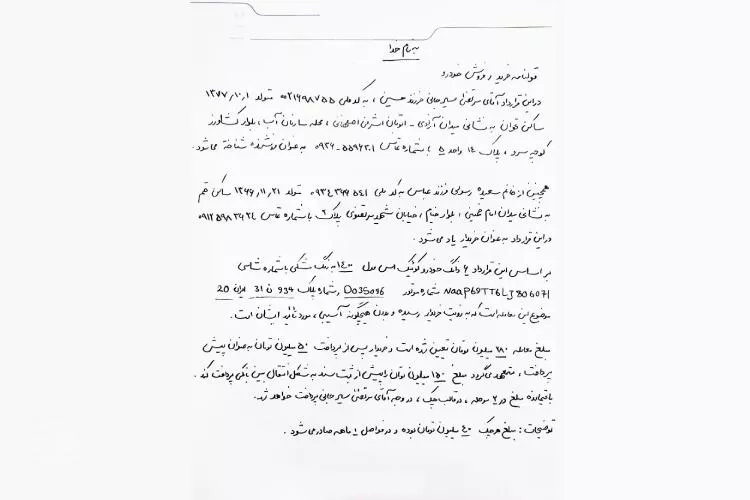 به نام خدا
قولنامه خرید و فروش خودرو
در این قرارداد آقای مرتضی میرجانی فرزند حسین، به کد ملی ۰۰۲۱۶۹۸۷۵۵ متولد ۱۳۷۷/۱۰/۱
ساکن تهران به نشانی میدان آزادی - اتوبان اشرفی اصفهانی، محله سازمان آب، بلوار کشاورز
کوچه سرو، پلاک ۱۴ واحد ۵ با شماره تماس به عنوان فروشنده شناخته می‌شود.
همچنین از خانم سعیده رسولی فرزند عباس به کد ملی متولد ۱۳۶۶/۱۱/۲۱ ساکن قم
به نشانی میدان امام خمینی، بلوار خیام، خیابان شهید مرتضوی پلاک ۲ با شماره تماس
در این قرارداد به عنوان خریدار یاد می‌شود.
بر اساس این قرارداد ۶ دانگ خودرو کوئیک اس مدل ۱۴۰۰ به رنگ مشکی با شماره شاسی
شماره موتور و شماره پلاک 934 ن 31 ایران 20
موضوع این معامله است که به رویت خریدار رسیده و بدون هیچگونه آسیبی، مورد تائید ایشان است.
مبلغ معامله ۲۸۰ میلیون تومان تعیین شده است و خریدار پس از پرداخت ۵۰ میلیون تومان به عنوان پیش
پرداخت، متعهد می‌گردد مبلغ ۱۵۰ میلیون تومان را پیش از ثبت سند به شکل انتقال بین بانکی پرداخت کند.
باقیمانده مبلغ در ۲ مرحله، در قالب چک، در وجه آقای مرتضی میرجانی پرداخت خواهد شد.
توضیحات: مبلغ هر چک ۴۰ میلیون تومان بوده و در فواصل ماهه صادر می‌شود.